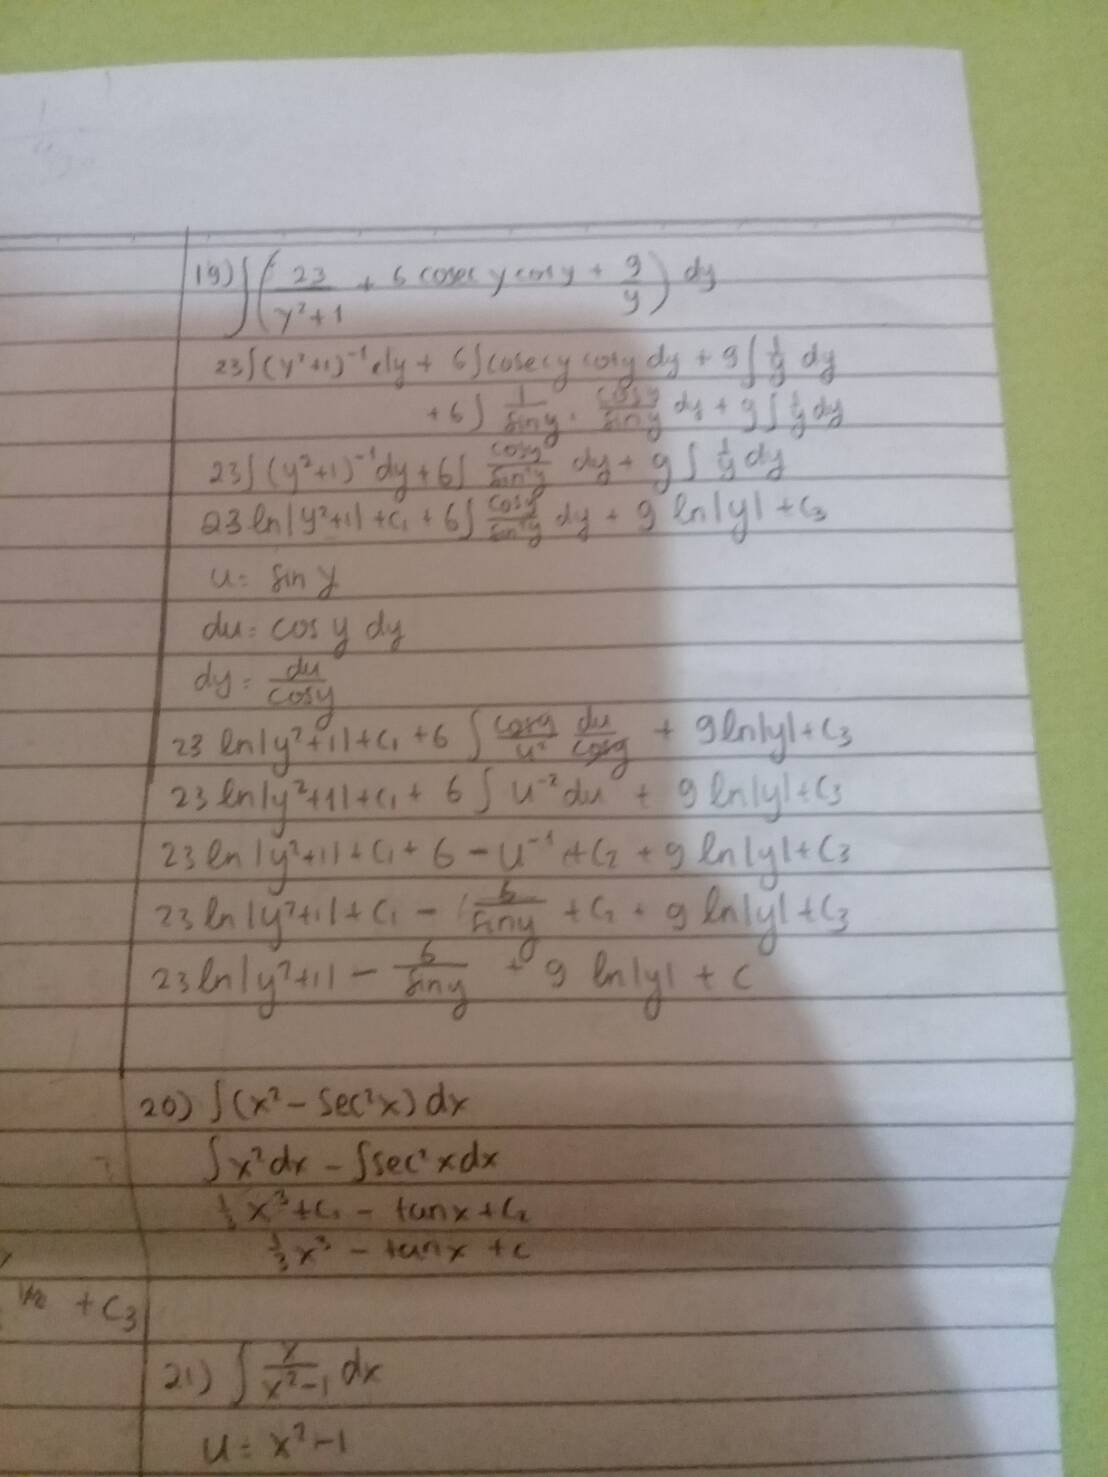 19) ∫ ( 23/(y²+1) + 6 cosec y cot y + 9/y ) dy
23∫(y²+1)⁻¹ dy + 6∫cosec y cot y dy + 9∫ 1/y dy
+6∫ 1/sin y · cos y/sin y dy + 9∫ 1/y dy
23∫(y²+1)⁻¹ dy + 6∫ cos y/sin² y dy + 9∫ 1/y dy
23 ln|y²+1| + C₁ + 6∫ cos y/sin² y dy + 9 ln|y| + C₃
u = sin y
du = cos y dy
dy = du/cos y
23 ln|y²+1| + C₁ + 6 ∫ cos y/u² du/cos y + 9 ln|y| + C₃
23 ln|y²+1| + C₁ + 6 ∫ u⁻² du + 9 ln|y| + C₃
23 ln|y²+1| + C₁ + 6 – u⁻¹ + C₂ + 9 ln|y| + C₃
23 ln|y²+1| + C₁ – 6/sin y + C₂ + 9 ln|y| + C₃
23 ln|y²+1| – 6/sin y + 9 ln|y| + C
20) ∫(x² – sec²x) dx
∫x² dx – ∫sec² x dx
⅓ x³ + C₁ – tan x + C₂
⅓ x³ – tan x + C
+ C₃
21) ∫ x/(x²–1) dx
u = x²–1